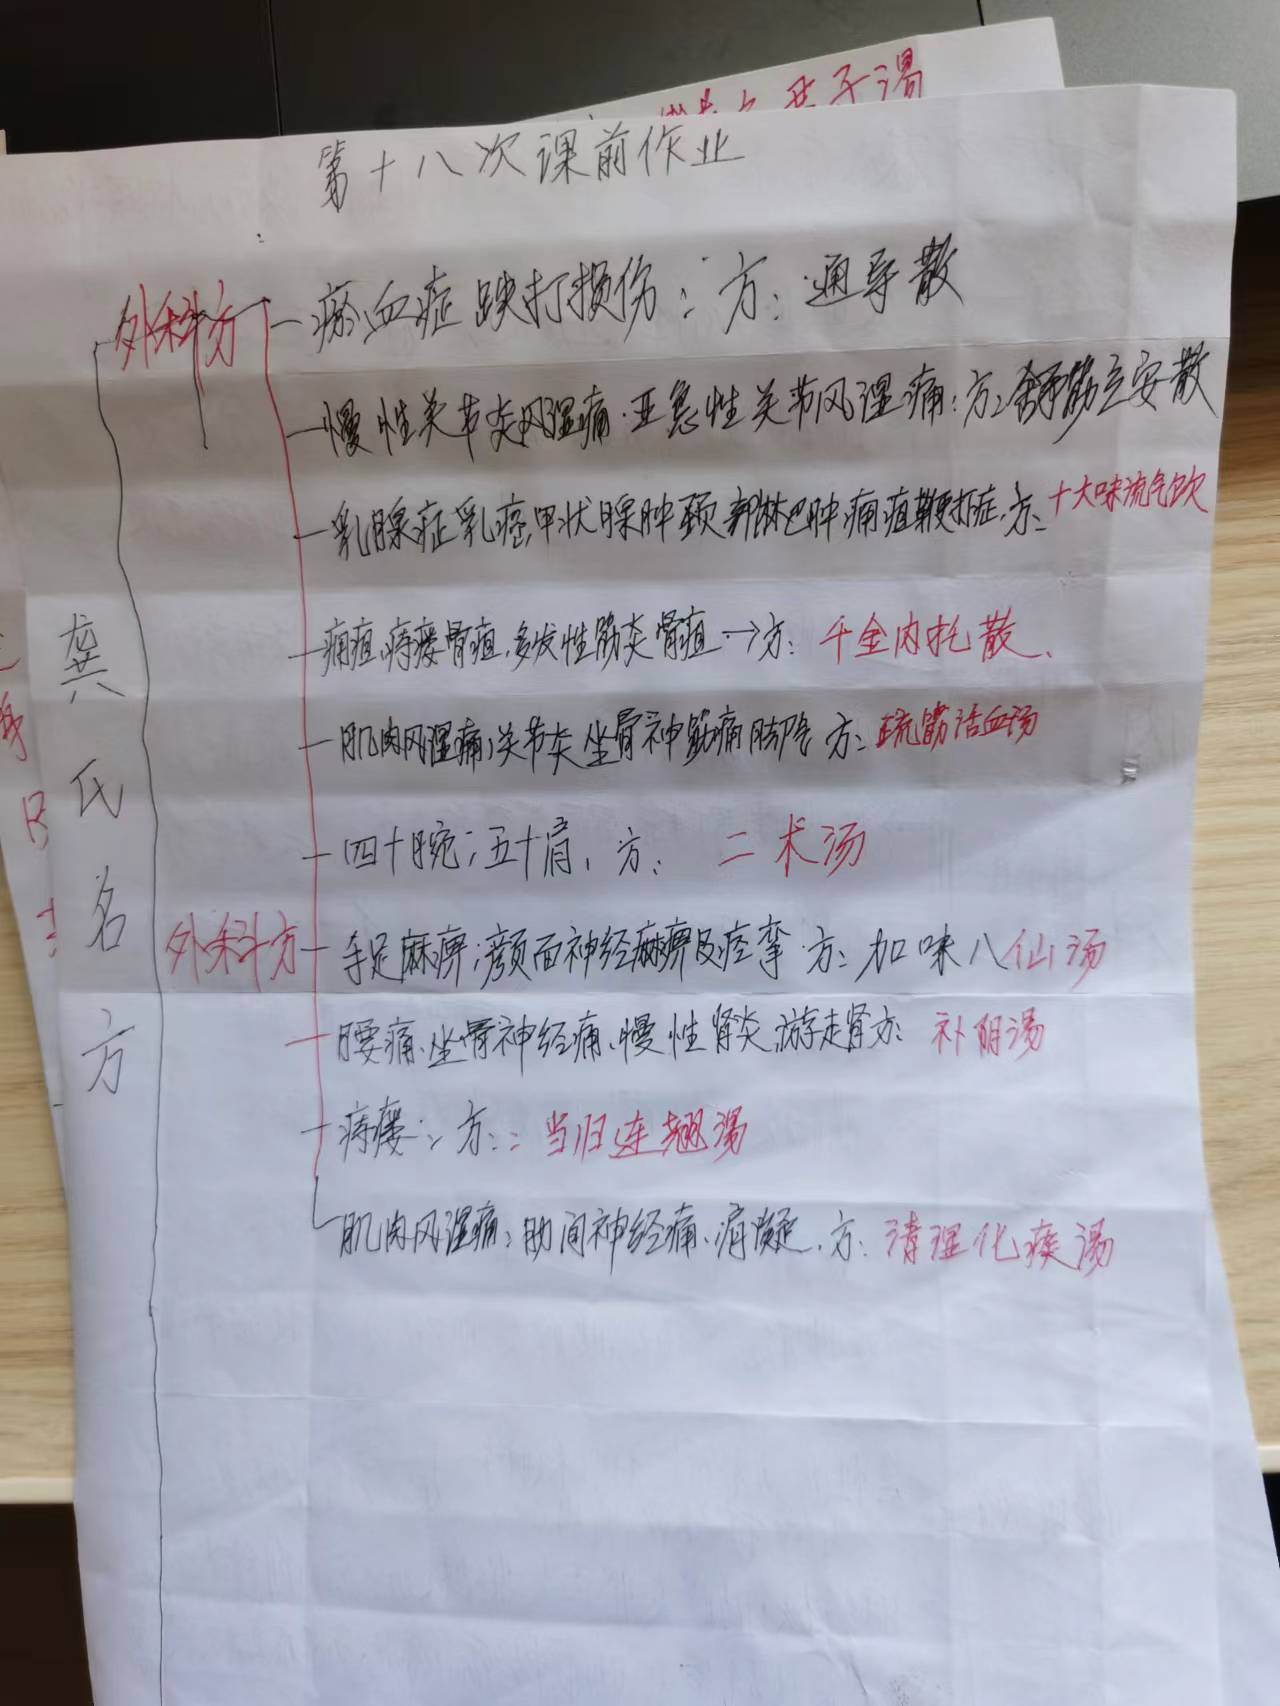 第十八次课前作业
外科方
瘀血症跌打损伤:方:通导散
慢性关节炎风湿痛·亚急性关节风湿痛:方:舒筋立安散
乳腺症乳癌,甲状腺肿颈部淋巴肿痈疽鞭打症.方:十六味流气饮
痈疽.痔瘘骨疽.多发性筋炎骨疽→方:千金内托散.
肌肉风湿痛;关节炎坐骨神筋痛脚 方:疏筋活血汤
四十腕;五十肩,方:二术汤
外科方
手足麻痹;颜面神经麻痹及痉挛·方:加味八仙汤
腰痛、坐骨神经痛、慢性肾炎.游走肾方:补阴汤
痔瘘:方:当归连翘汤
肌肉风湿痛;肋间神经痛、肩凝.方:清湿化痰汤
龚氏名方